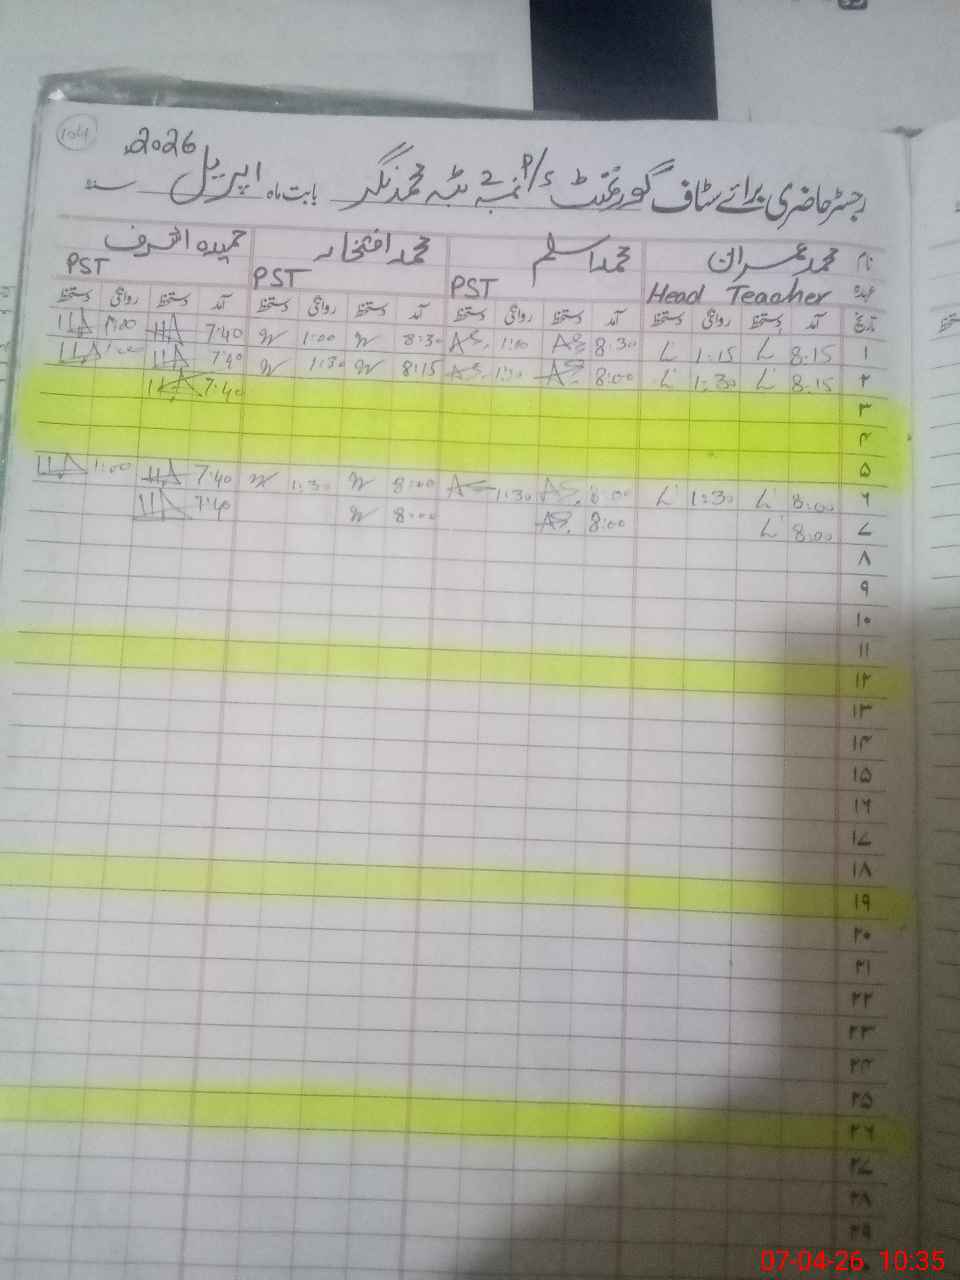 104
رجسٹر حاضری برائے سٹاف گورنمنٹ P/S نمبر 2 ٹبہ محمد نگر بابت ماہ اپریل 2026ء سنہ
نام محمد عمران محمد اسلم محمد افتخار حمیدہ اشرف
عہدہ Head Teacher PST PST PST
تاریخ آمد دستخط روانگی دستخط آمد دستخط روانگی دستخط آمد دستخط روانگی دستخط آمد دستخط روانگی دستخط
۱ 8:15 1:15 8:30 AS 1:00 AS 8:30 1:00 7:40 HA 1:00 HA
۲ 8:15 1:30 8:00 AS 1:30 AS 8:15 1:30 7:40 HA 1:00 HA
۳ 7:40 HA
۴
۵
۶ 8:00 1:30 8:00 AS 1:30 AS 8:00 1:30 7:40 HA 1:00 HA
۷ 8:00 8:00 AS 8:00 7:40 HA
۸
۹
۱۰
۱۱
۱۲
۱۳
۱۴
۱۵
۱۶
۱۷
۱۸
۱۹
۲۰
۲۱
۲۲
۲۳
۲۴
۲۵
۲۶
۲۷
۲۸
۲۹
07-04-26 10:35